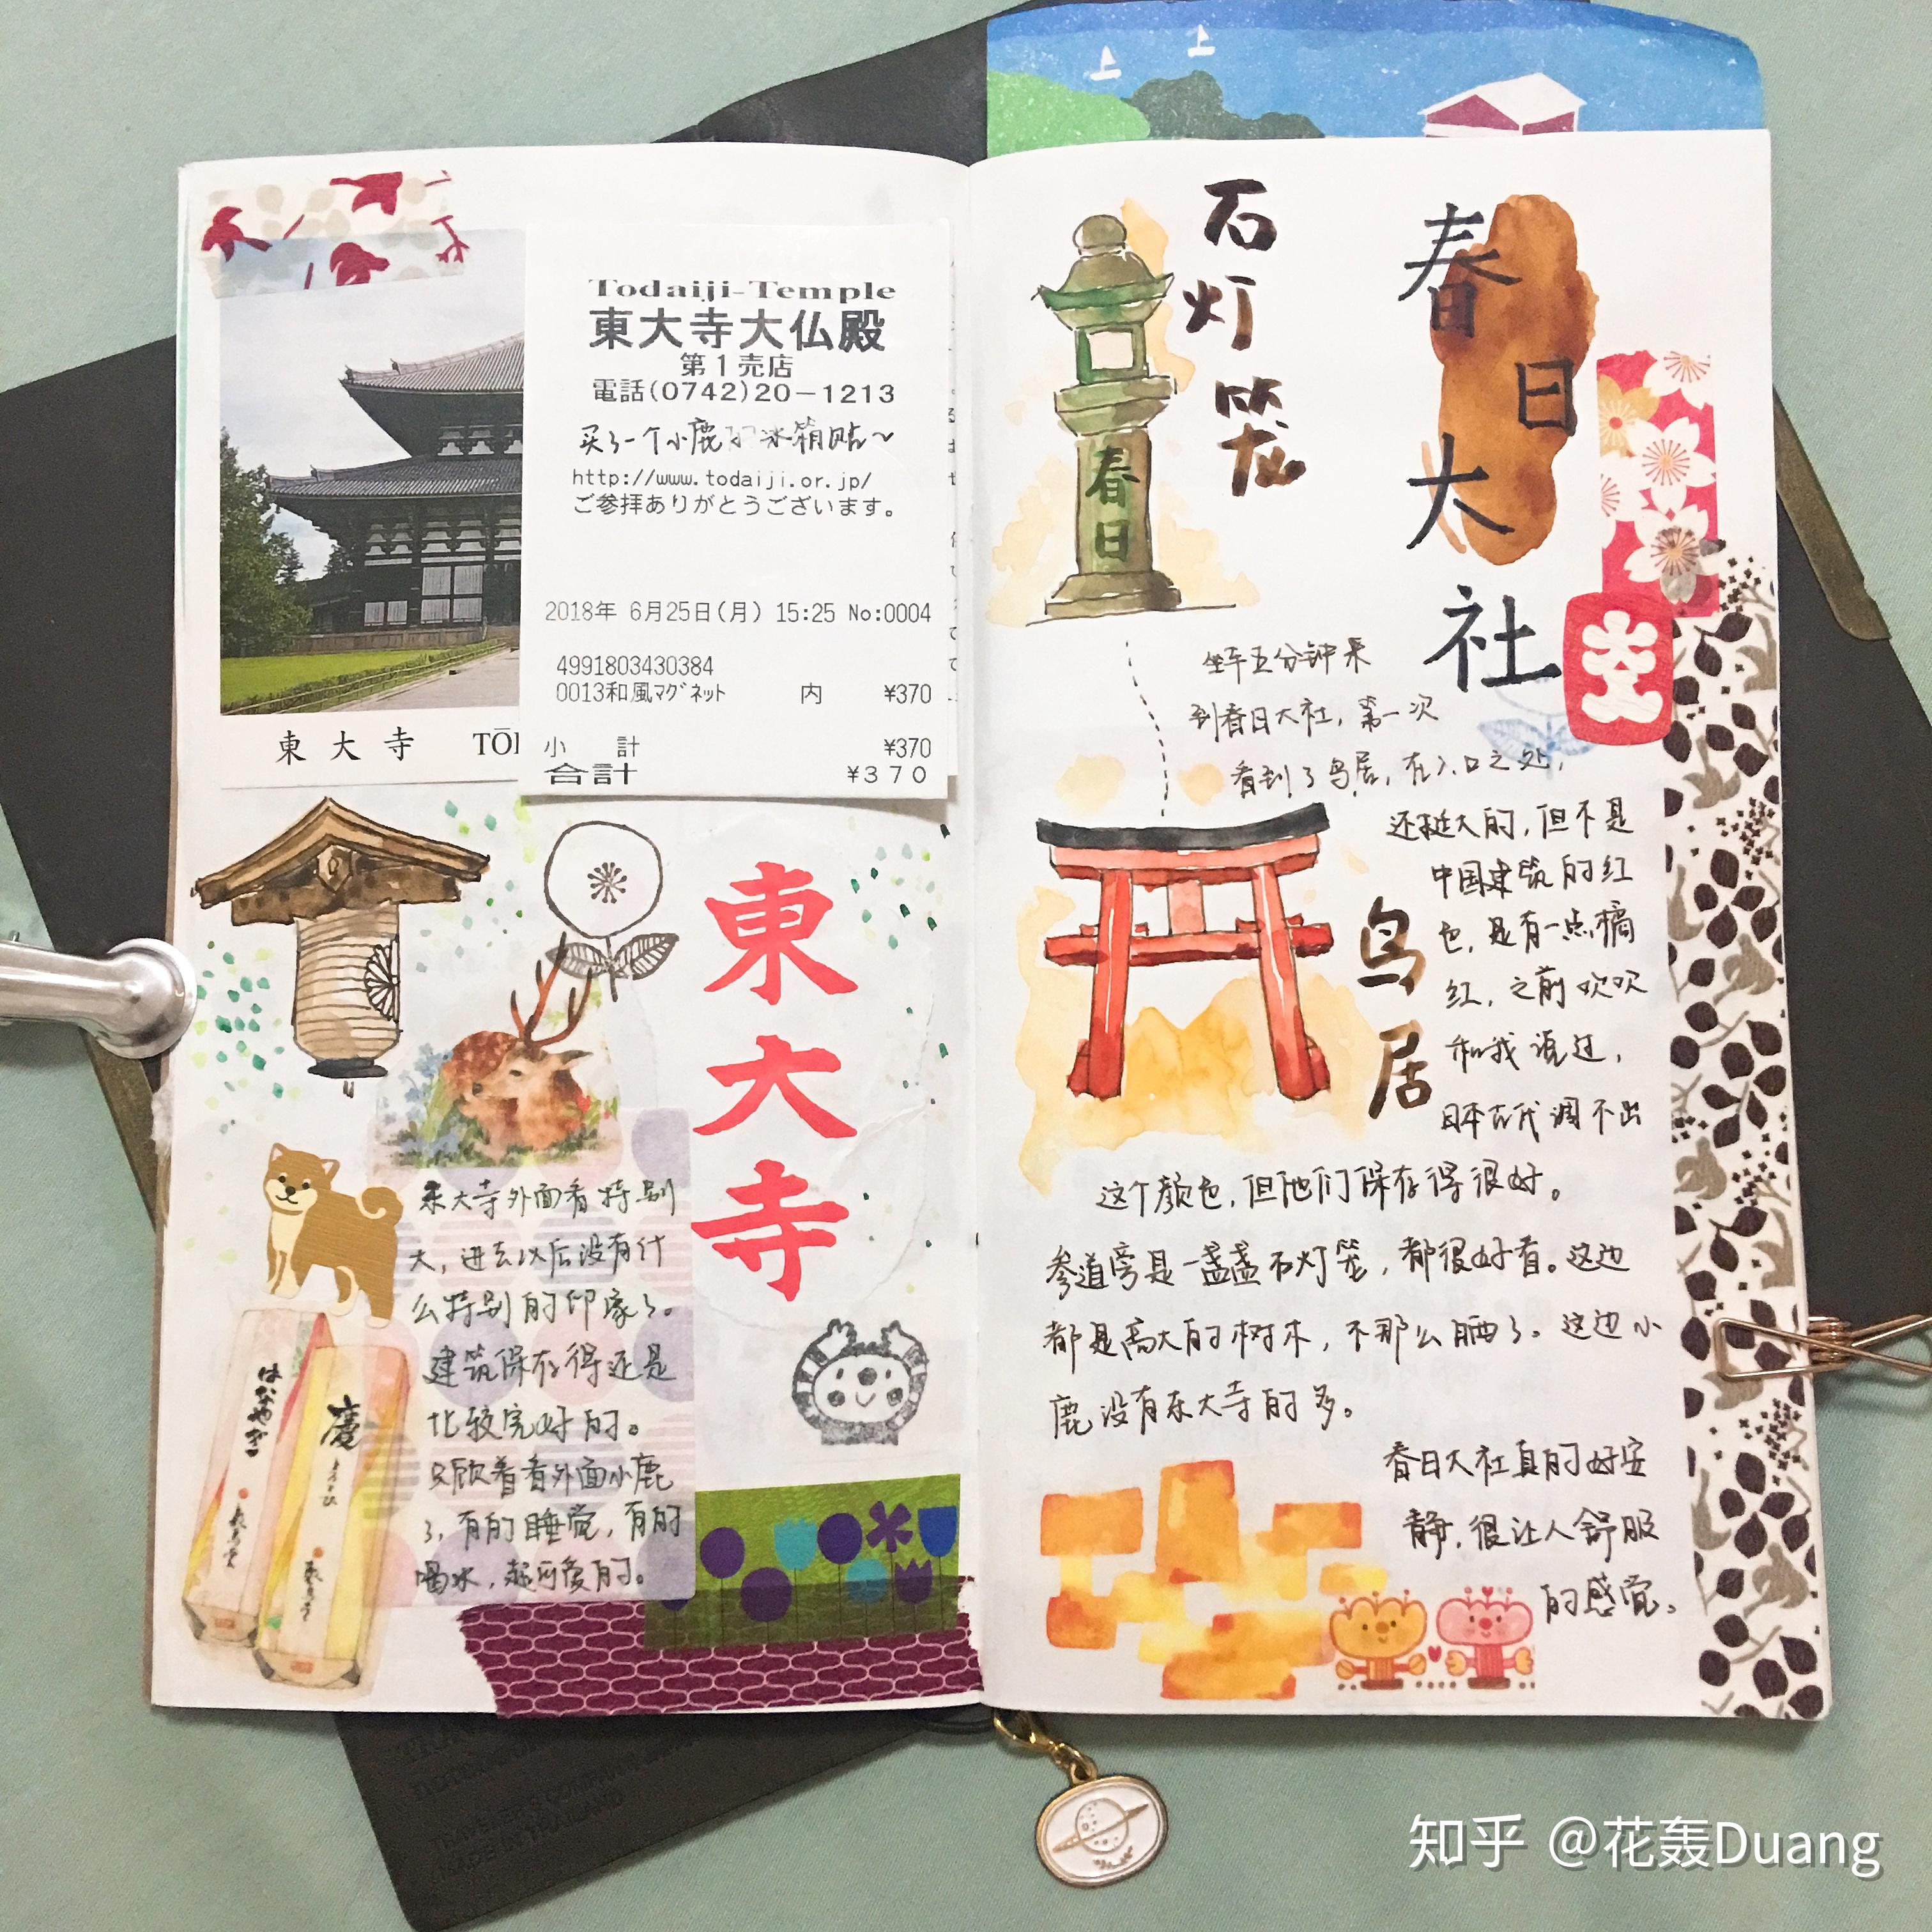 Todaiji-Temple
東大寺大仏殿
第1売店
電話(0742)20-1213
买了一个小鹿的冰箱贴~
http://www.todaiji.or.jp/
ご参拝ありがとうございます。
2018年 6月25日(月) 15:25 No:0004
4991803430384
0013和風マグネット 内 ¥370
小 計 ¥370
合計 ¥370
東大寺 TŌ
東大寺
东大寺外面看特别
大,进去以后没有什
么特别的印象了。
建筑保存得还是
比较完好的。
只顾着看外面小鹿
了,有的睡觉,有的
喝水,超可爱的。
はなやぎ
慶
石灯笼
春日
春日大社
坐车五分钟来
到春日大社,第一次
看到了鸟居,在入口之处,
还挺大的,但不是
中国建筑的红
色,是有一点橘
红,之前欢欢
和我说过,
日本古代调不出
这个颜色,但他们保存得很好。
鸟居
参道旁是一盏盏石灯笼,都很好看。这边
都是高大的树木,不那么晒了。这边小
鹿没有东大寺的多。
春日大社真的好安
静,很让人舒服
的感觉。
知乎 @花轰Duang